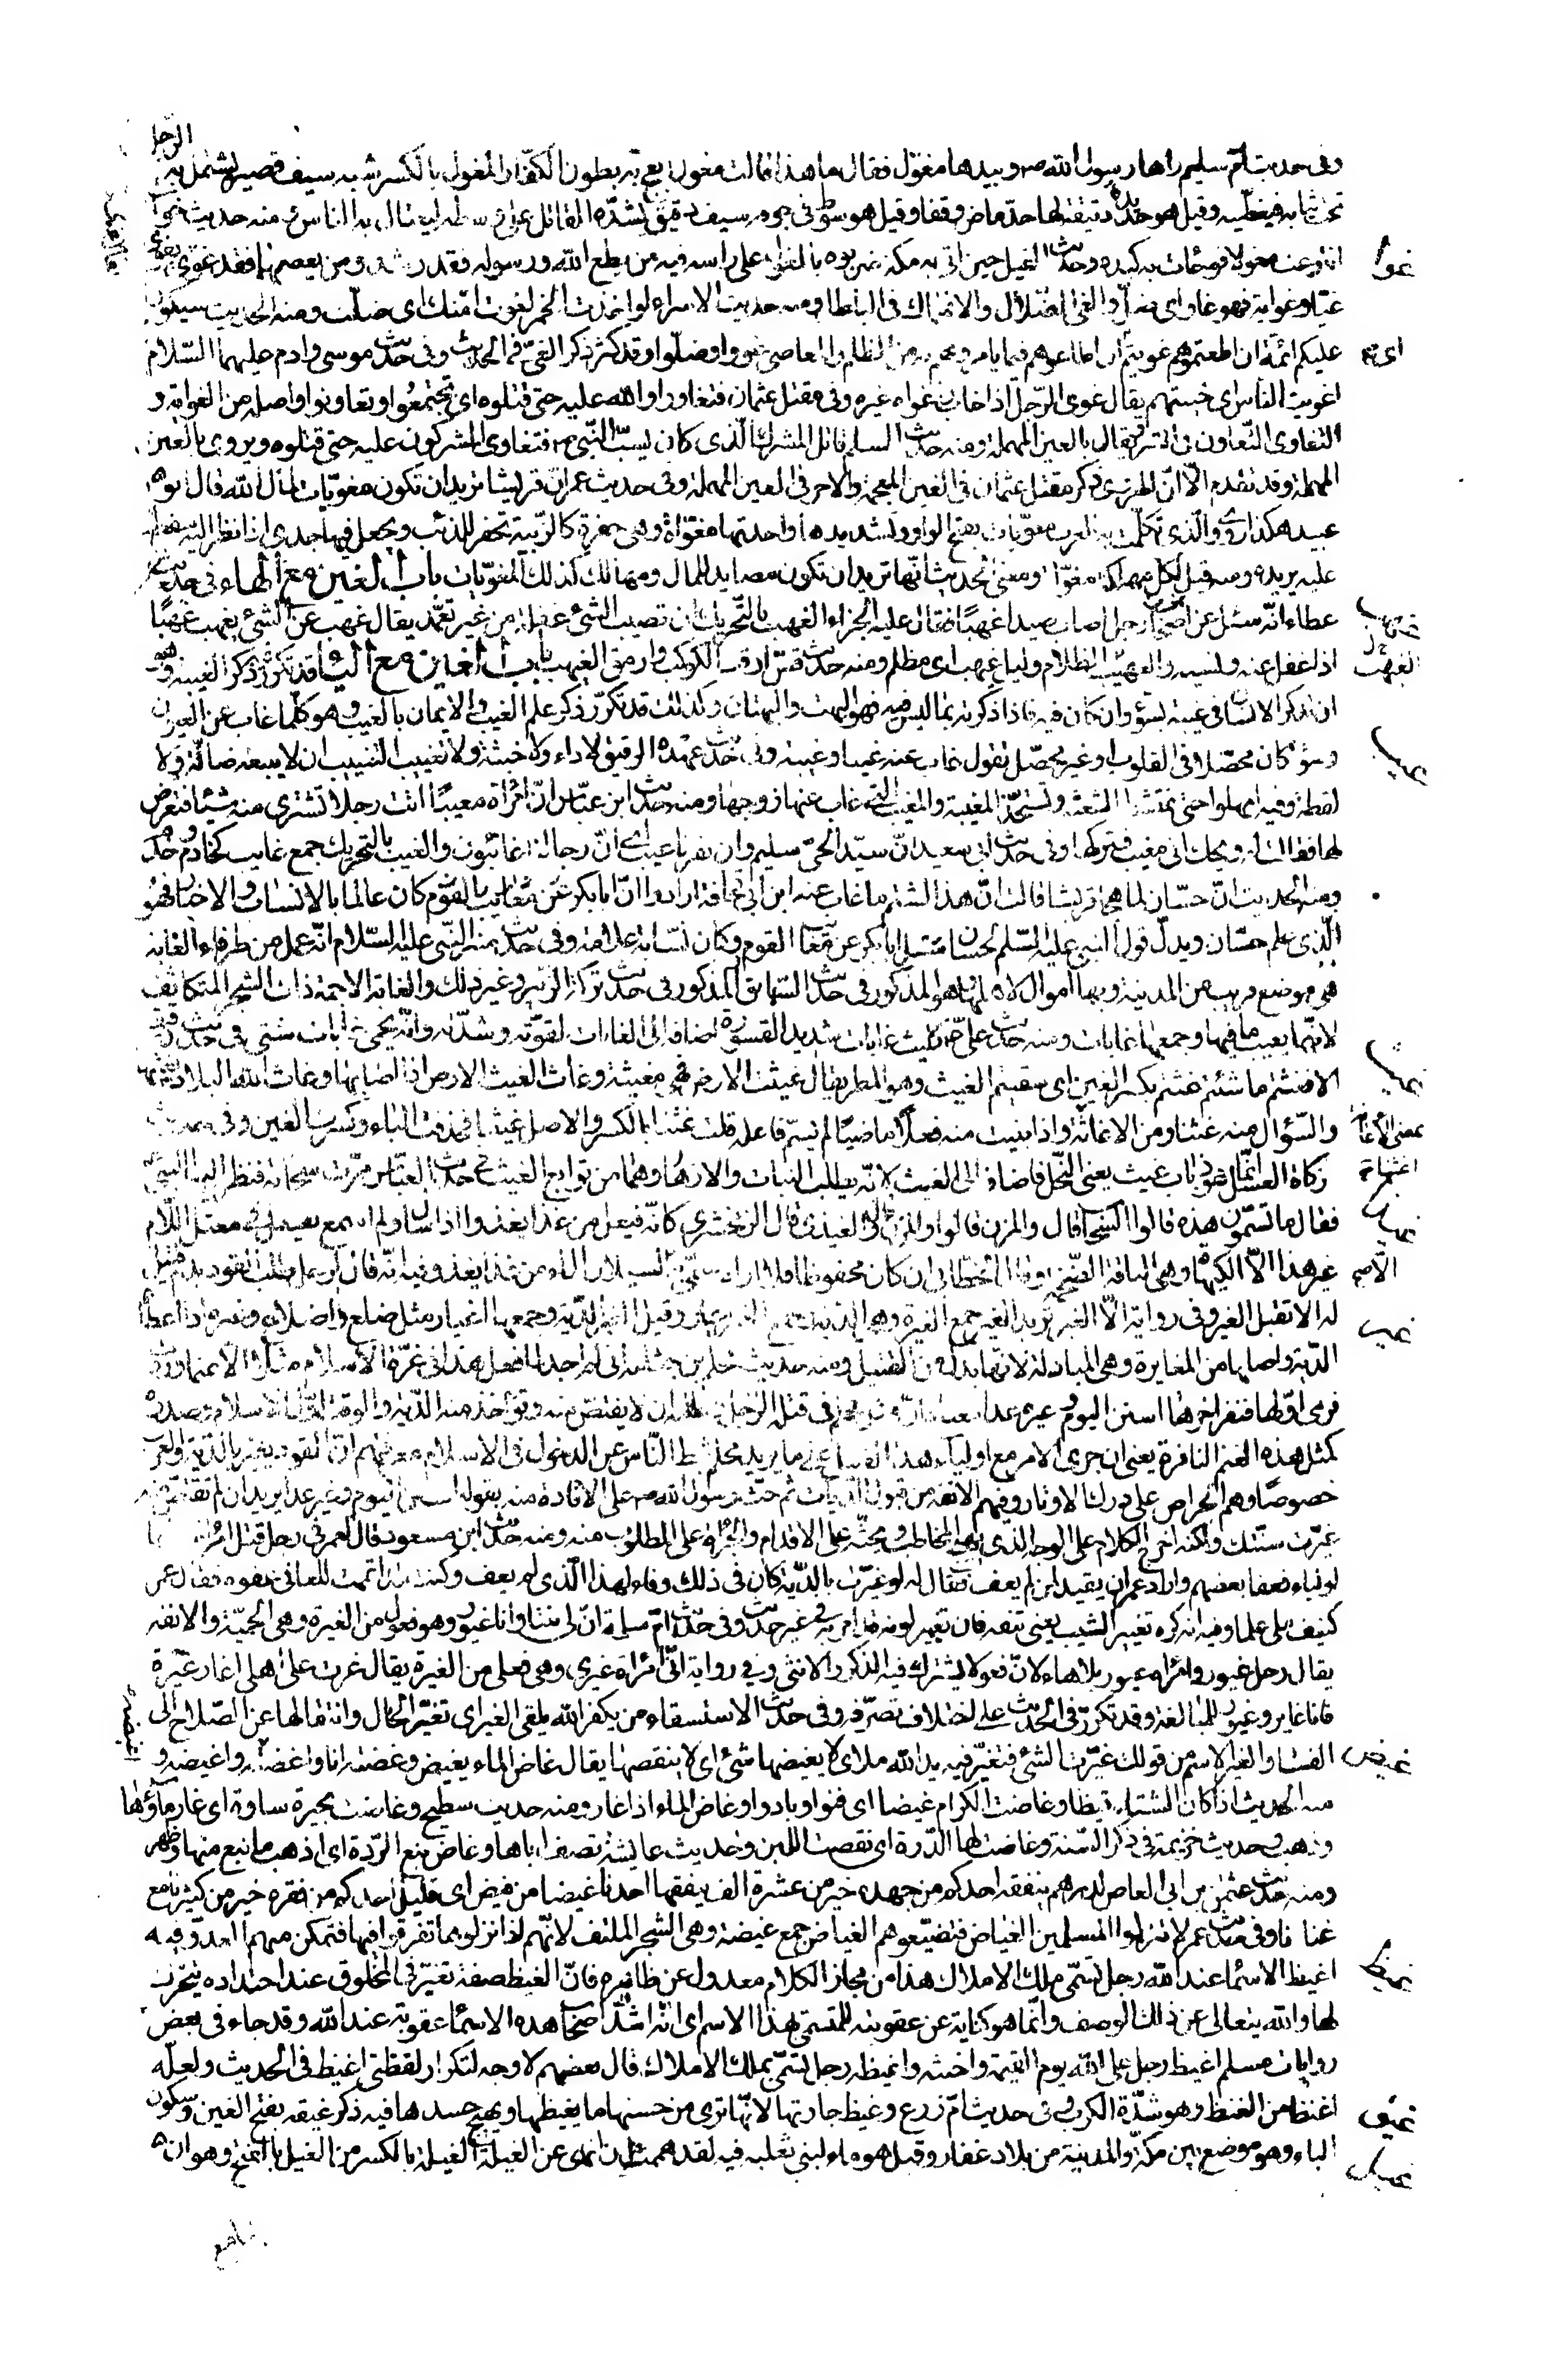 وفى حديث امّ سليم راها رسول الله صم وبيدها مغول فقال ما هذا قالت مغول ابعج به بطون الكفّار المغول بالكسر شبه سيف قصير يشتمل به
الرّجل
تحت ثيابه فيغطّيه وقيل هو حديدة دقيقة لها حدّ ماض وقفا وقيل هو سوط فى جوفه سيف دقيق يشدّه الفاتك على وسطه ليغتال به الناس ومنه حديث
انتزعت مغولا فوجأت به كبده وحديث الفيل حين اتى به مكة ضربوه بالمغول على راسه فيه من يطع الله ورسوله فقد رشد ومن يعصهما فقد غوى
غوا
غيّا وغواية فهو غاو اى ضلّ والغى الضّلال والانهماك فى الباطل ومنه حديث الاسراء لو اخذت الخمر لغوت امّتك اى ضلّت ومنه الحديث سيكون
عليكم ائمّة ان اطعتموهم غويتم اى ان اطاعوهم فيما يامرونهم به من الظلم والمعاصى غووا وضلّوا وقد كثر ذكر الغىّ فى الحديث وفى حديث موسى وادم عليهما السّلام
اغويت الناس اى خيبتهم يقال غوى الرّجل اذا خاب واغواه غيره وفى مقتل عثمان فتغاووا والله عليه حتى قتلوه اى تجمّعوا وتعاونوا واصله من الغواية و
التغاوى التّعاون فى الشر ويقال بالعين المهملة ومنه حديث المسلم قاتل المشرك الّذى كان يسبّ النّبى صم فتغاوى المشركون عليه حتى قتلوه ويروى بالعين
المهملة وقد تقدم الّا انّ الهروى ذكر مقتل عثمان فى الغين المعجمة والاخر فى العين المهملة وفى حديث عمر انّ قريشا تريد ان تكون مغويات لمال الله قال ابو
عبيد هكذا روى والّذى تكلّمت به العرب مغوّيات بفتح الواو وتشديدها واحدتها مغوّاة وهى حفرة كالزّبية تحفر للذئب ويجعل فيها جدى اذا نظر اليه سقط
عليه يريده ومنه قيل لكل مهلكة مغوّاة ومعنى الحديث انّها تريد ان تكون مصايد للمال ومهالك كذلك المغويّات باب الغين مع الهاء فى حديث
غهب
عطاء انّه سئل عن رجل اصاب صيدا غهبًا فقال عليه الجزاء الغهب بالتّحريك ان تصيب الشئ غفلة من غير تعمّد يقال غهب عن الشئ يغهب غهبًا
اذا غفل عنه ونسيه والغيهب الظلام وليل غيهب اى مظلم ومنه حديث قسّ ارقب الكوكب وارمق الغيهب باب الغين مع الياء قد تكرّر ذكر الغيبة وهو
الغيهب
ان تذكر الانسان فى غيبته بسوء وان كان فيه فاذا ذكرته بما ليس فيه فهو البهت والبهتان وكذلك قد تكرّر ذكر علم الغيب والايمان بالغيب وهو كلّما غاب عن العيون
وسواء كان محصّلا فى القلوب او غير محصّل تقول غاب عنه غيبا وغيبة وفى حديث عهدة الرقيق لا داء ولا خبثة ولا تغييب التغييب ان لا يبيعه ضالّة ولا
غيب
لقطة وفيه امهلوا حتى تمتشط الشعثة وتستحدّ المغيبة والمغيب التى غاب عنها زوجها ومنه حديث ابن عبّاس انّ امراة مغيبًا اتت رجلا تشترى منه شيئا فتعرض
لها فقالت له ويحك انى مغيب فتركها وفى حديث ابى سعيد انّ سيّد الحىّ سليم وان نفرنا غيب اى انّ رجالنا غائبون والغيب بالتحريك جمع غايب كخادم وخدم
ومنه الحديث انّ حسّان لما هجا قريشا قالت انّ هذا الشتم ما غاب عنه ابن ابى قحافة ارادوا انّ ابا بكر كان عالما بالانساب والاخبار فهو
الّذى علم حسّان ويدلّ قول النبى عليه السّلم لحسان سل ابا بكر عن معايب القوم وكان نسّابة علامة وفى حديث منبر النّبى عليه السّلام انّه عمل من طرفاء الغابة
هى موضع قريب من المدينة وبها اموال لاهلها وهو المذكور فى حديث السّباق والمذكور فى حديث تركة الزّبير وغير ذلك والغابة الاجمة ذات الشجر المتكاثف
لانّها تغيب ما فيها وجمعها غابات ومنه حديث علىّ كليث غابات شديد القسورة اضافه الى الغابات لقوّته وشدّته وانّه يحمى غابات شتى وفى حديث رقيقة
الا فغثتم ما شئتم غثتم بكسر الغين اى سقيتم الغيث وهو المطر يقال غيثت الارض فهى مغيثة وغاث الغيث الارض اذا اصابها وغاث الله البلاد يغيثها
غيث
والسّؤال منه غثنا ومن الاغاثة اغثنا واذا بنيت منه فعلا ماضيًا لم يسمّ فاعله قلت غثنا بالكسر والاصل غيثنا فحذفت الياء وكسرت الغين وفى حديث
بمعنى الاغاثة
زكاة العسل انّما هو ذباب غيث يعنى النّحل فاضافه الى الغيث لانّه يطلب النبات والازهار وهما من توابع الغيث فى حديث العبّاس مرّت سحابة فنظر اليها النّبى
فقال ما تسمّون هذه قالوا السّحاب قال والمزن قالوا والمزن قال والغيذى قال الزمخشرى كانّه فيعل من غذا يغذوا اذا سال ولم اسمع بفيعل فى معتل اللّام
غيذ
غير هذا الّا الكيهاة وهى الناقة الضّخمة وقال الخطابى ان كان محفوظا فلا اراه سمّى به الا لسيلان الماء من غذا يغذو وفيه انّه قال لرجل طلب القود بدم قتيل
له الا تقبل الغير وفى رواية الّا الغير تريد الغير جمع الغيرة وهى الدّية وجمع الغير اغيار وقيل الغير الدّية وجمعها اغيار مثل ضلع واضلاع وغيره اذا اعطاه
غير
الدّية واصلها من المغايرة وهى المبادلة لانّها بدل من القتيل ومنه حديث محلم بن جثامة انى لم اجد لما فعل هذا فى غرّة الاسلام مثلا الا غنما وردت
فرمى اوّلها فنفر اخرها اسنن اليوم وغيّر غدا معناه انّ مثل محلم فى قتله الرّجل وطلبه ان لا يقتصّ منه وتؤخذ منه الدّية والوقت اوّل الاسلام وصدره
كمثل هذه الغنم النافرة يعنى ان جرى الامر مع اولياء هذا القتيل على ما يريد محلم ثبّط النّاس عن الدخول فى الاسلام معرفتهم انّ القود يغيّر بالدّية والعرب
خصوصًا وهم الحرّاص على درك الاوتار وفيهم الانفة من قبول الدّيات ثم حثّ رسول الله صم على الاقادة منه بقوله اسنن اليوم وغيّر غدا يريد ان لم تقتصّ منه
غيّرت سنّتك ولكنه اخرج الكلام على الوجه الّذى يهيج المخاطب ويحثّه على الاقدام والجرأة على المطلوب منه ومنه حديث ابن مسعود قال لعمر فى رجل قتل امراة
اولياء فعفا بعضهم واراد عمر ان يقيد لمن لم يعف فقال له لو غيّرت بالدّية كان فى ذلك وفاء لهذا الّذى لم يعف وكنت قد اتممت للعافى عفوه فقال عمر
كنيف ملئ علما وفيه انه كره تغيير الشيب يعنى نتفه فان تغيير لونه قد امر به فى غير حديث وفى حديث امّ سلمة انّ لى بنتا وانا غيور وهو فعول من الغيرة وهى الحميّة والانفة
يقال رجل غيور وامراة غيور بلا هاء لانّ فعولا يشترك فيه الذكر والانثى وفى رواية انّى امراة غيرى وهى فعلى من الغيرة يقال غرت على اهلى اغار غيرة
فانا غاير وغيور للمبالغة وقد تكرّر فى الحديث على اختلاف تصرّفه وفى حديث الاستسقاء من يكفر الله يلقى الغير اى تغيّر الحال وانتقالها عن الصّلاح الى
الفساد والغير الاسم من قولك غيّرت الشئ فتغيّر فيه يد الله ملاى لا يغيضها شئ اى لا ينقصها يقال غاض الماء يغيض وغضته انا واغضته واغيضه و
غيض
منه الحديث اذا كان الشتاء قيظا وغاضت الكرام غيضا اى فنوا وبادوا وغاض الماء اذا غار ومنه حديث سطيح وغاضت بحيرة ساوة اى غار ماؤها
وذهب وحديث خزيمة فى ذكر السّنة وغاضت لها الدّرة اى نقصت اللبن وحديث عايشة تصف اباها وغاض نبع الرّدة اى اذهب ما نبع منها وظهر
ومنه حديث عثمن بن ابى العاص لدرهم ينفقه احدكم من جهده خير من عشرة الف ينفقها احدنا غيضا من فيض اى قليل احدكم من فقره خير من كثيرنا مع
غنانا وفى حديث عمر لا تنزلوا المسلمين الغياض فتضيّعوهم الغياض جمع غيضة وهى الشجر الملتف لانّهم اذا نزلوها تفرقوا فيها فتمكن منهم العدوّ فيه
اغيظ الاسماء عند الله رجل تسمّى ملك الاملاك هذا من مجاز الكلام معدول عن ظاهره فانّ الغيظ صفة تغيّر فى المخلوق عند احتداده يتحرّك
غيظ
لها والله يتعالى عن ذلك الوصف وانّما هو كناية عن عقوبته للمتسمّى بهذا الاسم اى انّه اشدّ اصحاب هذه الاسماء عقوبة عند الله وقد جاء فى بعض
روايات مسلم اغيظ رجل على الله يوم القيمة واخبثه واغيظه رجل تسمّى بملك الاملاك قال بعضهم لا وجه لتكرار لفظتى اغيظ فى الحديث ولعلّه
اغنظ من الغنظ وهو شدّة الكرب وفى حديث امّ زرع وغيظ جارتها لانّها ترى من حسنها ما يغيظها ويهيج حسدها فيه ذكر غيقة بفتح الغين وسكون
غيق
الياء وهو موضع بين مكّة والمدينة من بلاد غفار وقيل هو ماء لبنى ثعلبة فيه لقد هممت ان انهى عن الغيلة الغيلة بالكسر من الغيل بالفتح وهو ان
غيل